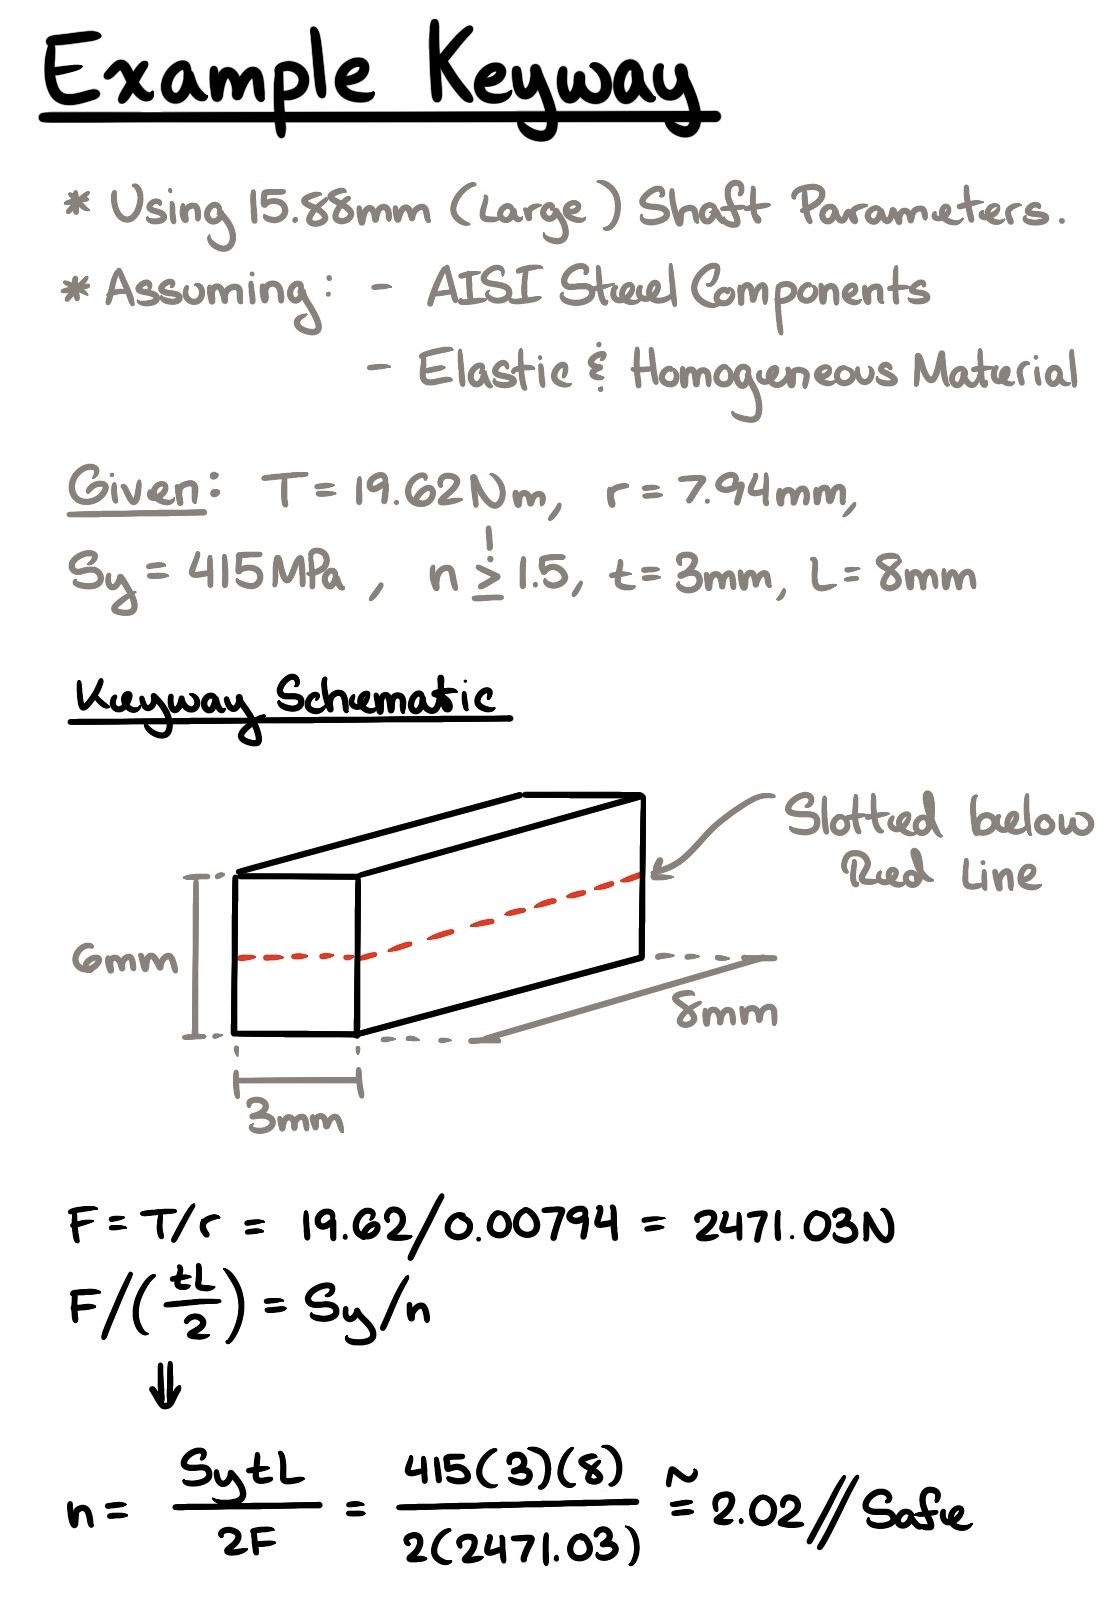 Example Keyway
* Using 15.88mm (Large) Shaft Parameters.
* Assuming: - AISI Steel Components
- Elastic & Homogeneous Material
Given: T = 19.62Nm, r = 7.94mm,
Sy = 415MPa, n ≥! 1.5, t = 3mm, L = 8mm
Keyway Schematic
Slotted below
Red Line
6mm
8mm
3mm
F = T/r = 19.62/0.00794 = 2471.03N
F/(tL/2) = Sy/n
⇓
n = SytL/2F = 415(3)(8)/2(2471.03) ≅ 2.02 // Safe